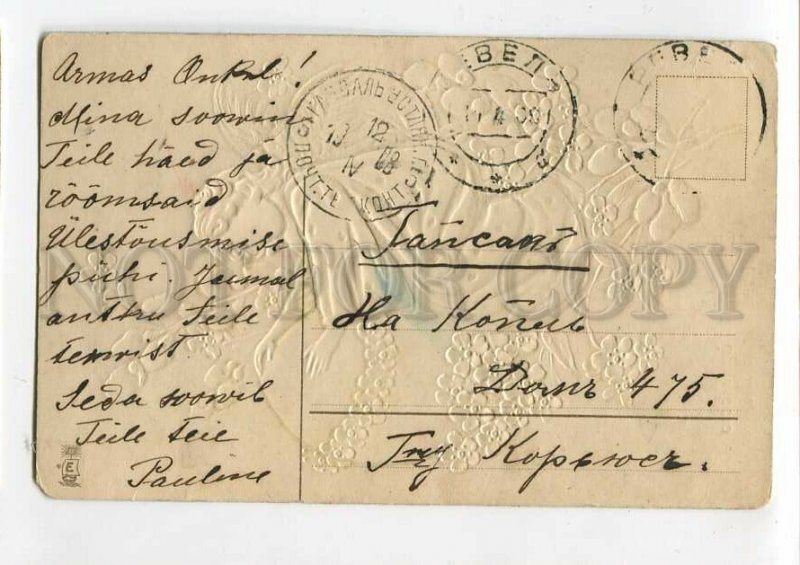 Armas Onkel!
Mina soowin
Teile häad ja
rõõmsaid
Ülestõusmise
pühi. Jumal
antku Teile
terwist.
Seda soowib
Teile Teie
Pauline
E
РЕВЕЛЬ
12
13 IV 08
Гапсаль
На Копель
Домъ 475.
Гну Корьюсъ.
NOT FOR COPY